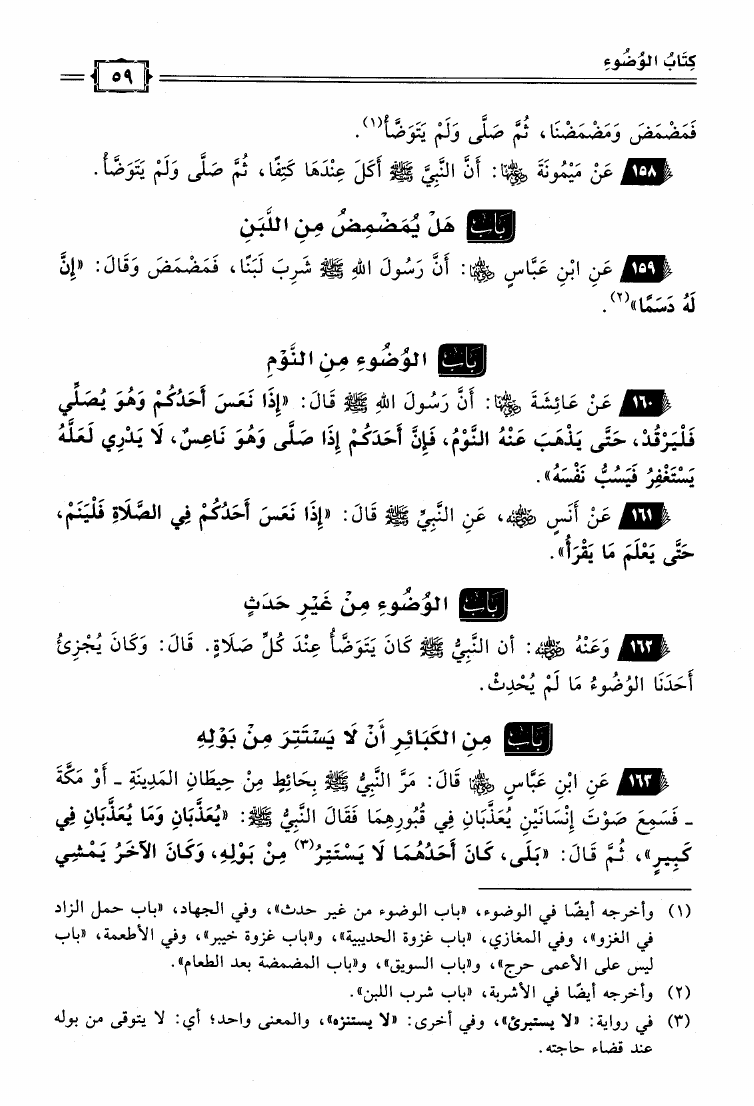 كِتَابُ الوُضُوءِ
٥٩
فَمَضْمَضَ وَمَضْمَضْنَا، ثُمَّ صَلَّى وَلَمْ يَتَوَضَّأْ(١).
١٥٨ عَنْ مَيْمُونَةَ رضي الله عنها: أَنَّ النَّبِيَّ ﷺ أَكَلَ عِنْدَهَا كَتِفًا، ثُمَّ صَلَّى وَلَمْ يَتَوَضَّأْ.
بَابٌ هَلْ يُمَضْمِضُ مِنِ اللَّبَنِ
١٥٩ عَنِ ابْنِ عَبَّاسٍ رضي الله عنهما: أَنَّ رَسُولَ اللهِ ﷺ شَرِبَ لَبَنًا، فَمَضْمَضَ وَقَالَ: «إِنَّ
لَهُ دَسَمًا»(٢).
بَابُ الوُضُوءِ مِنِ النَّوْمِ
١٦٠ عَنْ عَائِشَةَ رضي الله عنها: أَنَّ رَسُولَ اللهِ ﷺ قَالَ: «إِذَا نَعَسَ أَحَدُكُمْ وَهُوَ يُصَلِّي
فَلْيَرْقُدْ، حَتَّى يَذْهَبَ عَنْهُ النَّوْمُ، فَإِنَّ أَحَدَكُمْ إِذَا صَلَّى وَهُوَ نَاعِسٌ، لَا يَدْرِي لَعَلَّهُ
يَسْتَغْفِرُ فَيَسُبُّ نَفْسَهُ».
١٦١ عَنْ أَنَسٍ رضي الله عنه، عَنِ النَّبِيِّ ﷺ قَالَ: «إِذَا نَعَسَ أَحَدُكُمْ فِي الصَّلَاةِ فَلْيَنَمْ،
حَتَّى يَعْلَمَ مَا يَقْرَأُ».
بَابُ الوُضُوءِ مِنْ غَيْرِ حَدَثٍ
١٦٢ وَعَنْهُ رضي الله عنه: أن النَّبِيُّ ﷺ كَانَ يَتَوَضَّأُ عِنْدَ كُلِّ صَلَاةٍ. قَالَ: وَكَانَ يُجْزِئُ
أَحَدَنَا الوُضُوءُ مَا لَمْ يُحْدِثْ.
بَابٌ مِنِ الكَبَائِرِ أَنْ لَا يَسْتَتِرَ مِنْ بَوْلِهِ
١٦٣ عَنِ ابْنِ عَبَّاسٍ رضي الله عنهما قَالَ: مَرَّ النَّبِيُّ ﷺ بِحَائِطٍ مِنْ حِيطَانِ المَدِينَةِ ـ أَوْ مَكَّةَ
ـ فَسَمِعَ صَوْتَ إِنْسَانَيْنِ يُعَذَّبَانِ فِي قُبُورِهِمَا فَقَالَ النَّبِيُّ ﷺ: «يُعَذَّبَانِ وَمَا يُعَذَّبَانِ فِي
كَبِيرٍ»، ثُمَّ قَالَ: «بَلَى، كَانَ أَحَدُهُمَا لَا يَسْتَتِرُ(٣) مِنْ بَوْلِهِ، وَكَانَ الآخَرُ يَمْشِي
(١) وأخرجه أيضًا في الوضوء، «باب الوضوء من غير حدث»، وفي الجهاد، «باب حمل الزاد
في الغزو»، وفي المغازي، «باب غزوة الحديبية»، و«باب غزوة خيبر»، وفي الأطعمة، «باب
ليس على الأعمى حرج»، و«باب السويق»، و«باب المضمضة بعد الطعام».
(٢) وأخرجه أيضًا في الأشربة، «باب شرب اللبن».
(٣) في رواية: «لا يستبرئ»، وفي أخرى: «لا يستنزه»، والمعنى واحد؛ أي: لا يتوقى من بوله
عند قضاء حاجته.